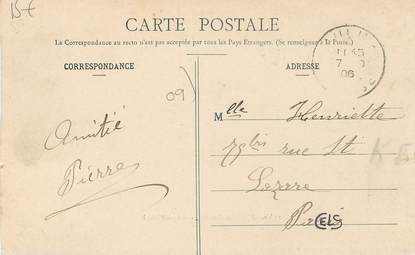 15€
CARTE POSTALE
La Correspondance au recto n'est pas acceptée par tous les Pays Etrangers. (Se renseigner à la Poste.)
CORRESPONDANCE
ADRESSE
09)
Amitié
Pierre
Mlle Henriette
rue St
Lazare
Paris
CELS
06